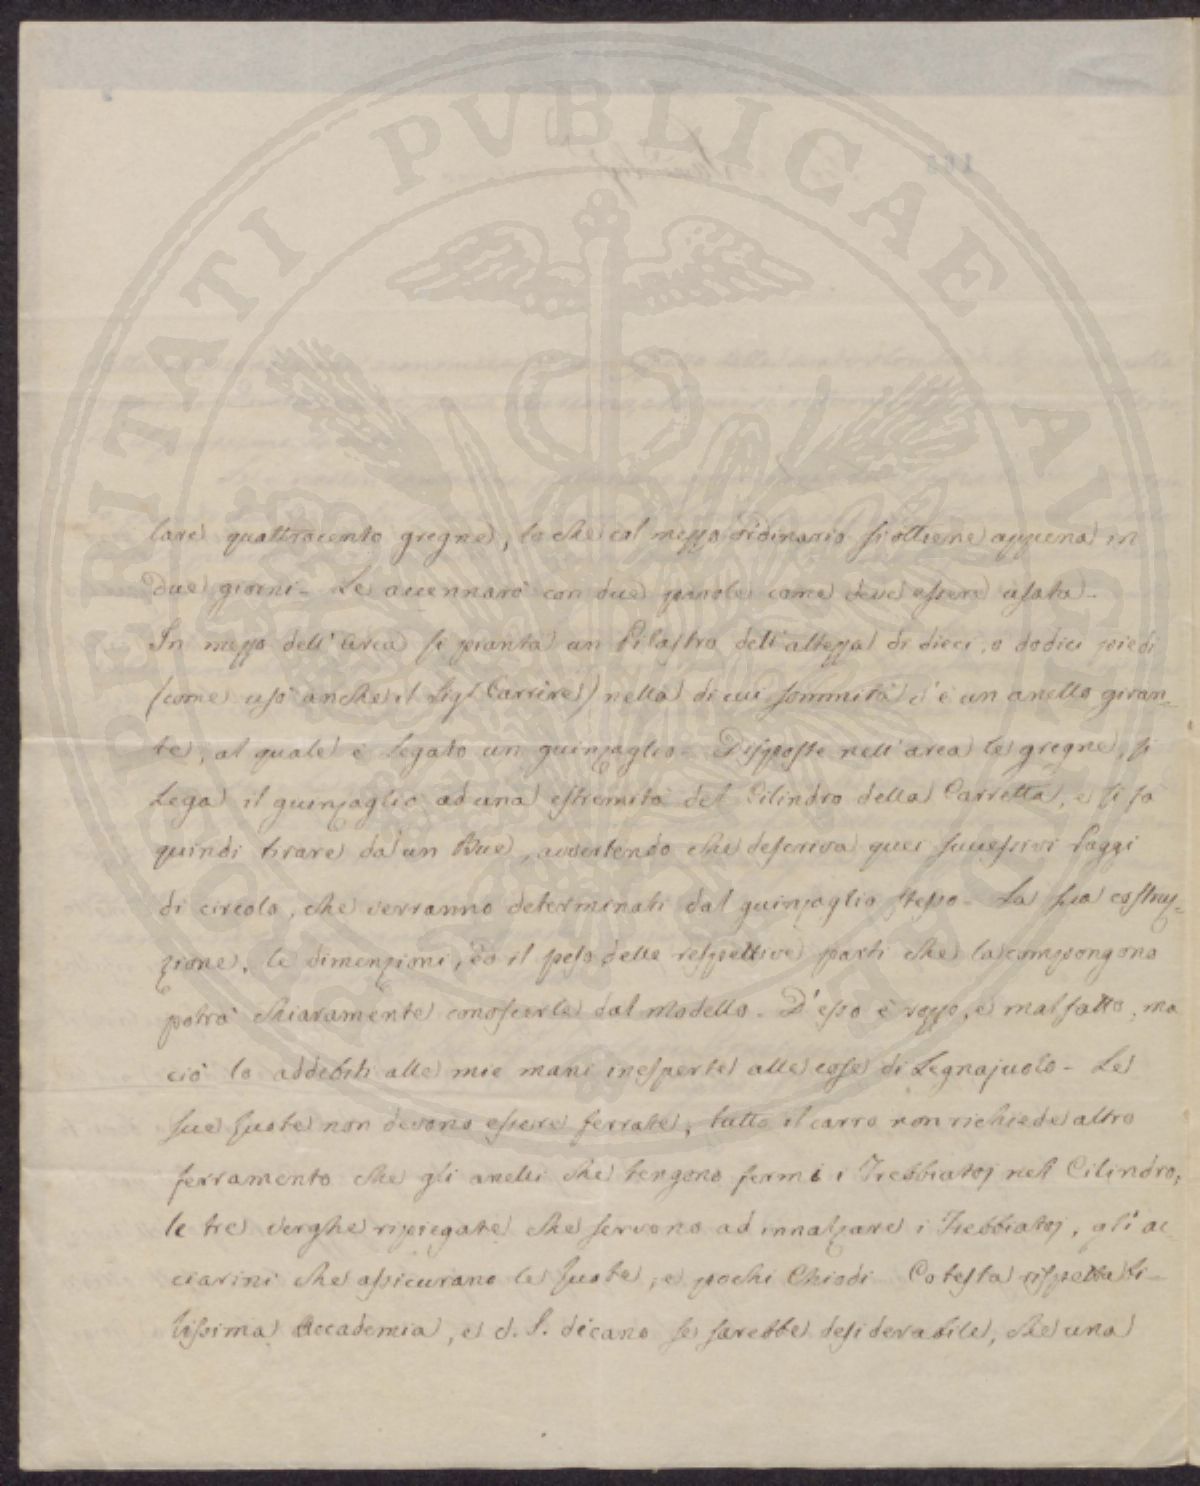 PROSPERITATI PVBLICAE AVGENDAE
lare quattrocento gregne, lo che col mezzo ordinario si ottiene appena in
due giorni - Le accennarò con due parole come deve essere usata -
In mezzo dell'area si pianta un Pilastro dell'altezza di dieci, o dodici piedi
(come usò anche il Sig.r Carrire) nella di cui sommità v'è un anello giran-
te, al quale è legato un guinzaglio - Disposte nell'area le gregne, si
Lega il guinzaglio ad una estremità del Cilindro della Carretta, e si fà
quindi tirare da un Bue, avvertendo che descriva quei successivi raggi
di circolo, che verranno determinati dal guinzaglio stesso - La sua costru-
zione, le dimenzioni, ed il peso delle respettive parti che la compongono
potrà chiaramente conoscerle dal Modello - D'esso è rozzo, e mal fatto, ma
ciò lo addebiti alle mie mani inesperte alle cose di Legnajuolo - Le
sue Ruote non devono essere ferrate; tutto il carro non richiede altro
ferramento che gli anelli che tengono fermi i Trebbiatoj nel Cilindro,
le tre verghe ripiegate che servono ad innalzare i Trebbiatoj, gli ac-
ciarini che assicurano le Ruote, e pochi Chiodi Cotesta rispettabi-
lissima Accademia, e V. S. dicano se sarebbe desiderabile, che una